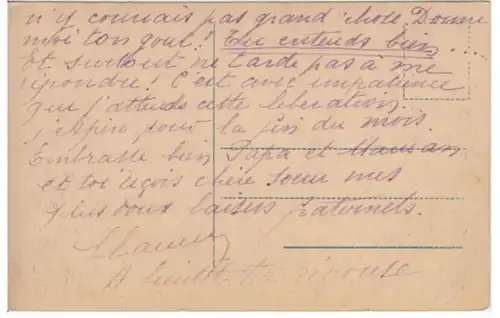 n'y connais pas grand'chose. Donne
moi ton gout! Tu entends bien....
Et surtout ne tarde pas à me
répondre! C'est avec impatience
que j'attends cette liberation.
J'espère pour la fin du mois.
Embrasse bien Papa et Maman
et toi reçois chère soeur mes
plus doux baisers fraternels.
A bientot ta réponse